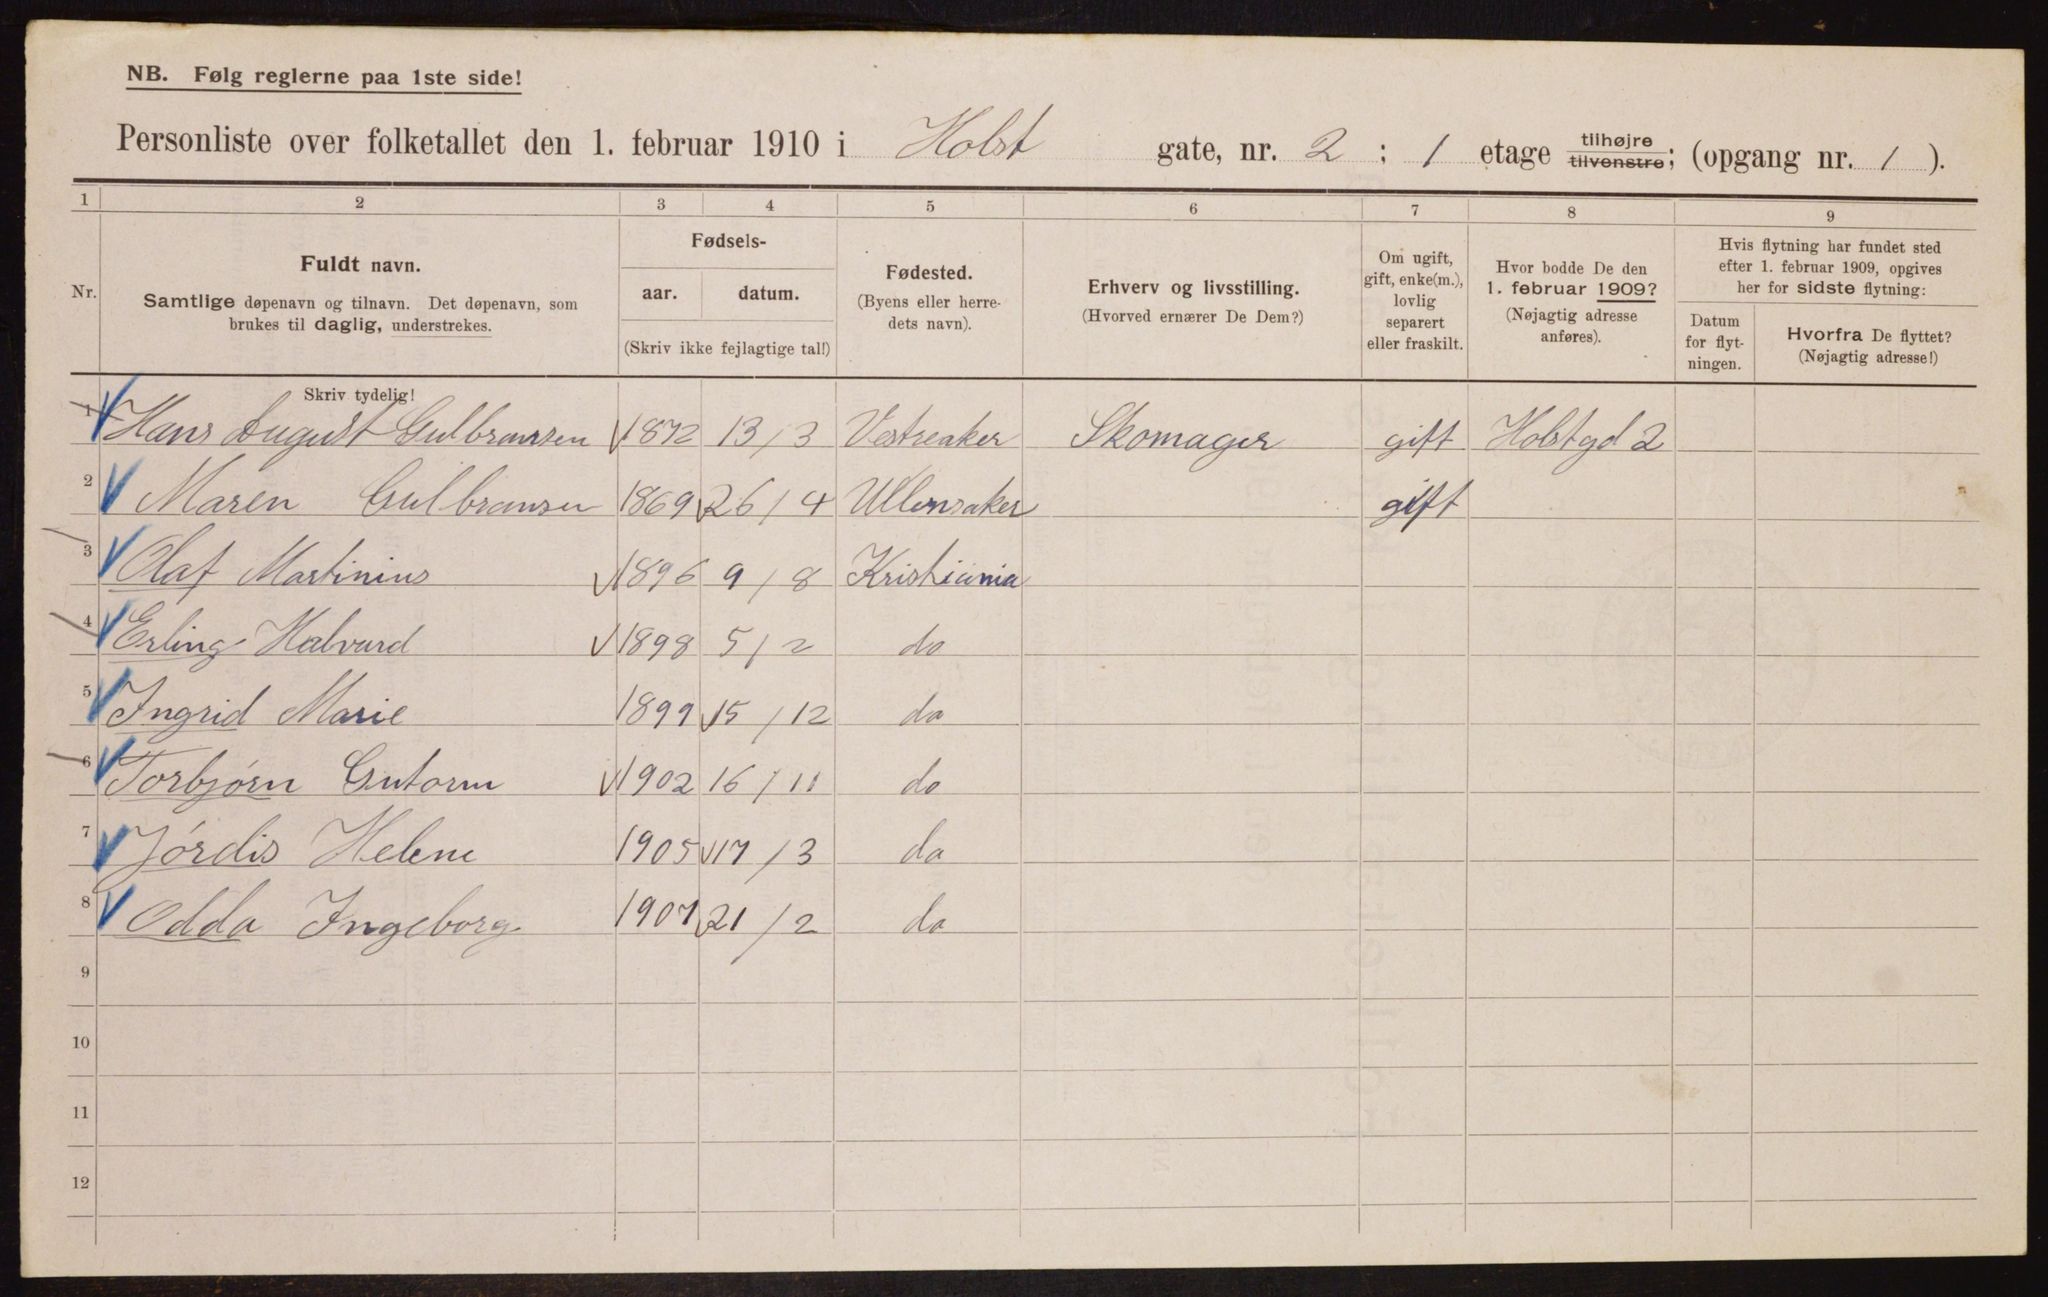 NB. Følg reglerne paa 1ste side!
Personliste over folketallet den 1. februar 1910 i Holst gate, nr. 2 ; 1 etage tilhøjre tilvenstre; (opgang nr. 1 ).
1 2 3 4 5 6 7 8 9
Nr.
Fuldt navn.
Samtlige døpenavn og tilnavn. Det døpenavn, som
brukes til daglig, understrekes.
Fødsels-
aar. datum.
(Skriv ikke fejlagtige tal!)
Fødested.
(Byens eller herre-
dets navn).
Erhverv og livsstilling.
(Hvorved ernærer De Dem?)
Om ugift,
gift, enke(m.),
lovlig
separert
eller fraskilt.
Hvor bodde De den
1. februar 1909?
(Nøjagtig adresse
anføres).
Hvis flytning har fundet sted
efter 1. februar 1909, opgives
her for sidste flytning:
Datum
for flyt-
ningen.
Hvorfra De flyttet?
(Nøjagtig adresse!)
Skriv tydelig!
1 Hans August Gulbransen 1872 13/3 Vestreaker Skomager gift Holstgd 2
2 Maren Gulbransen 1869 26/4 Ullensaker gift
3 Olaf Martinius 1896 9/8 Kristiania
4 Erling Halvard 1898 5/2 do
5 Ingrid Marie 1899 15/12 do
6 Torbjørn Gutorm 1902 16/11 do
7 Jørdis Helene 1905 17/3 do
8 Odda Ingeborg 1907 21/2 do
9
10
11
12